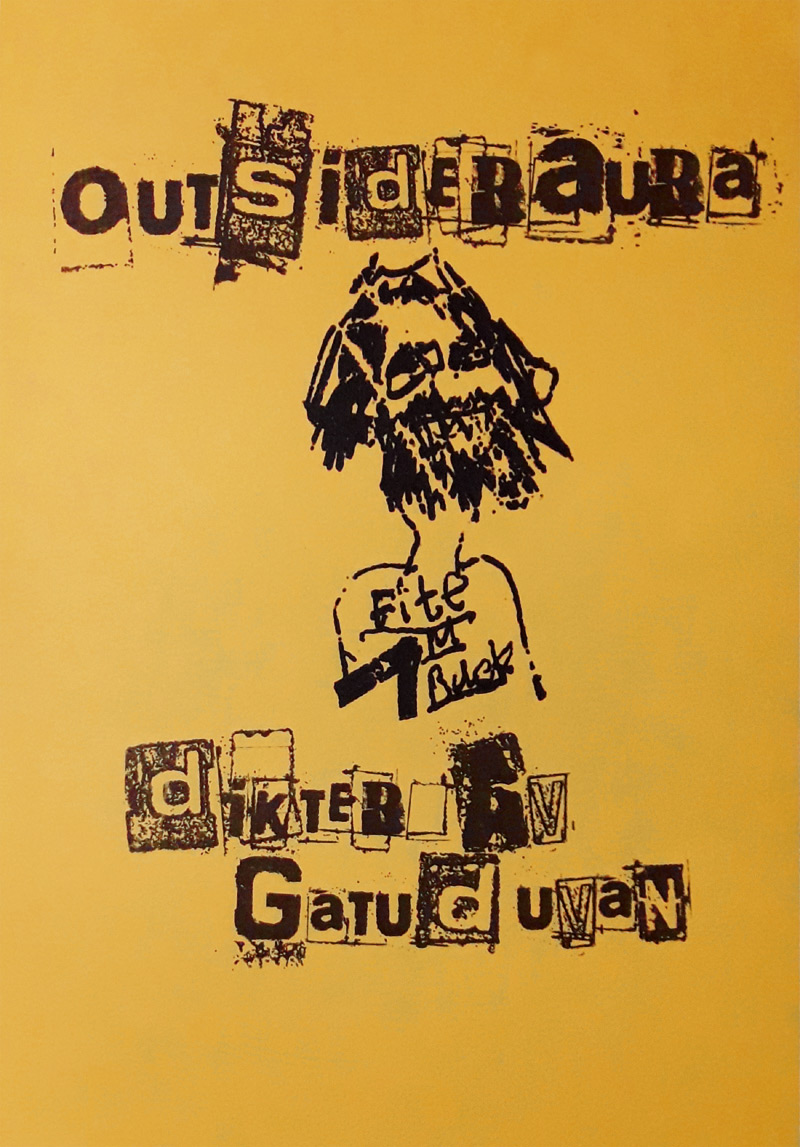 OUTSiDERaURa
Fite
M
Buck
diKTER AV
GaTUdUVaN